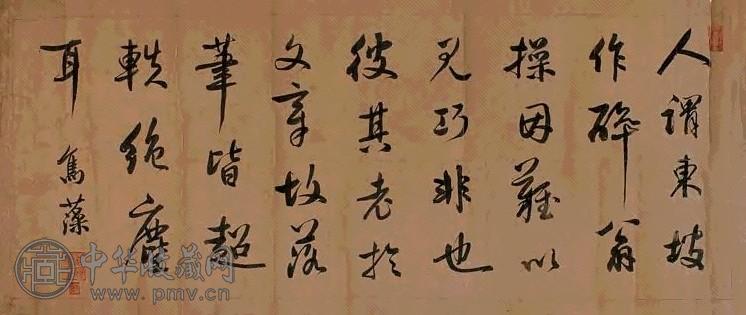 人謂東坡
作醉翁
操因難以
見巧非也
彼其老於
文章故落
筆皆超
軼絕塵
耳
寯藻
中华收藏网
www.pmv.cn